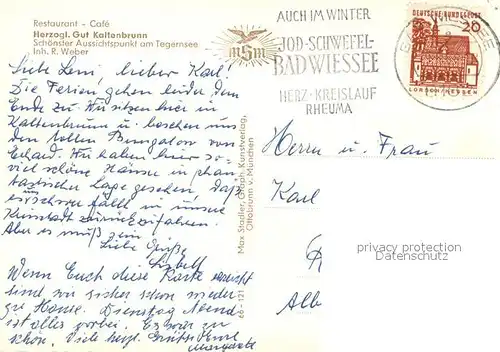 Restaurant - Café
Herzogl. Gut Kaltenbrunn
Schönster Aussichtspunkt am Tegernsee
Inh. R. Weber
mSm
AUCH IM WINTER
JOD-SCHWEFEL-
BAD WIESSEE
HERZ-KREISLAUF
RHEUMA
DEUTSCHE BUNDESPOST
20
LORSCH/HESSEN
Liebe Leni, lieber Karl!
Die Ferien gehen leider dem
Ende zu. Wir sitzen hier in
Kaltenbrunn u. besehen uns
den tollen Bungalow von
Erhard. Wir haben hier so-
viel schöne Häuser in phan-
tastischer Lage gesehen, daß
es schwer fällt in unsere
zurückzufahren.
Aber es muß sein.
Liebe Grüße
Wenn Euch diese Karte erreicht
sind wir sicher schon wieder
zu Hause. Dienstag Abend
ist alles vorbei. Es war zu
schön. Viele herzl. Grüße Eure
Max Stadler, Graph. Kunstverlag,
Ottobrunn v. München
66 - 121
Herrn u. Frau
Karl
R
Alb
privacy protection
watermark